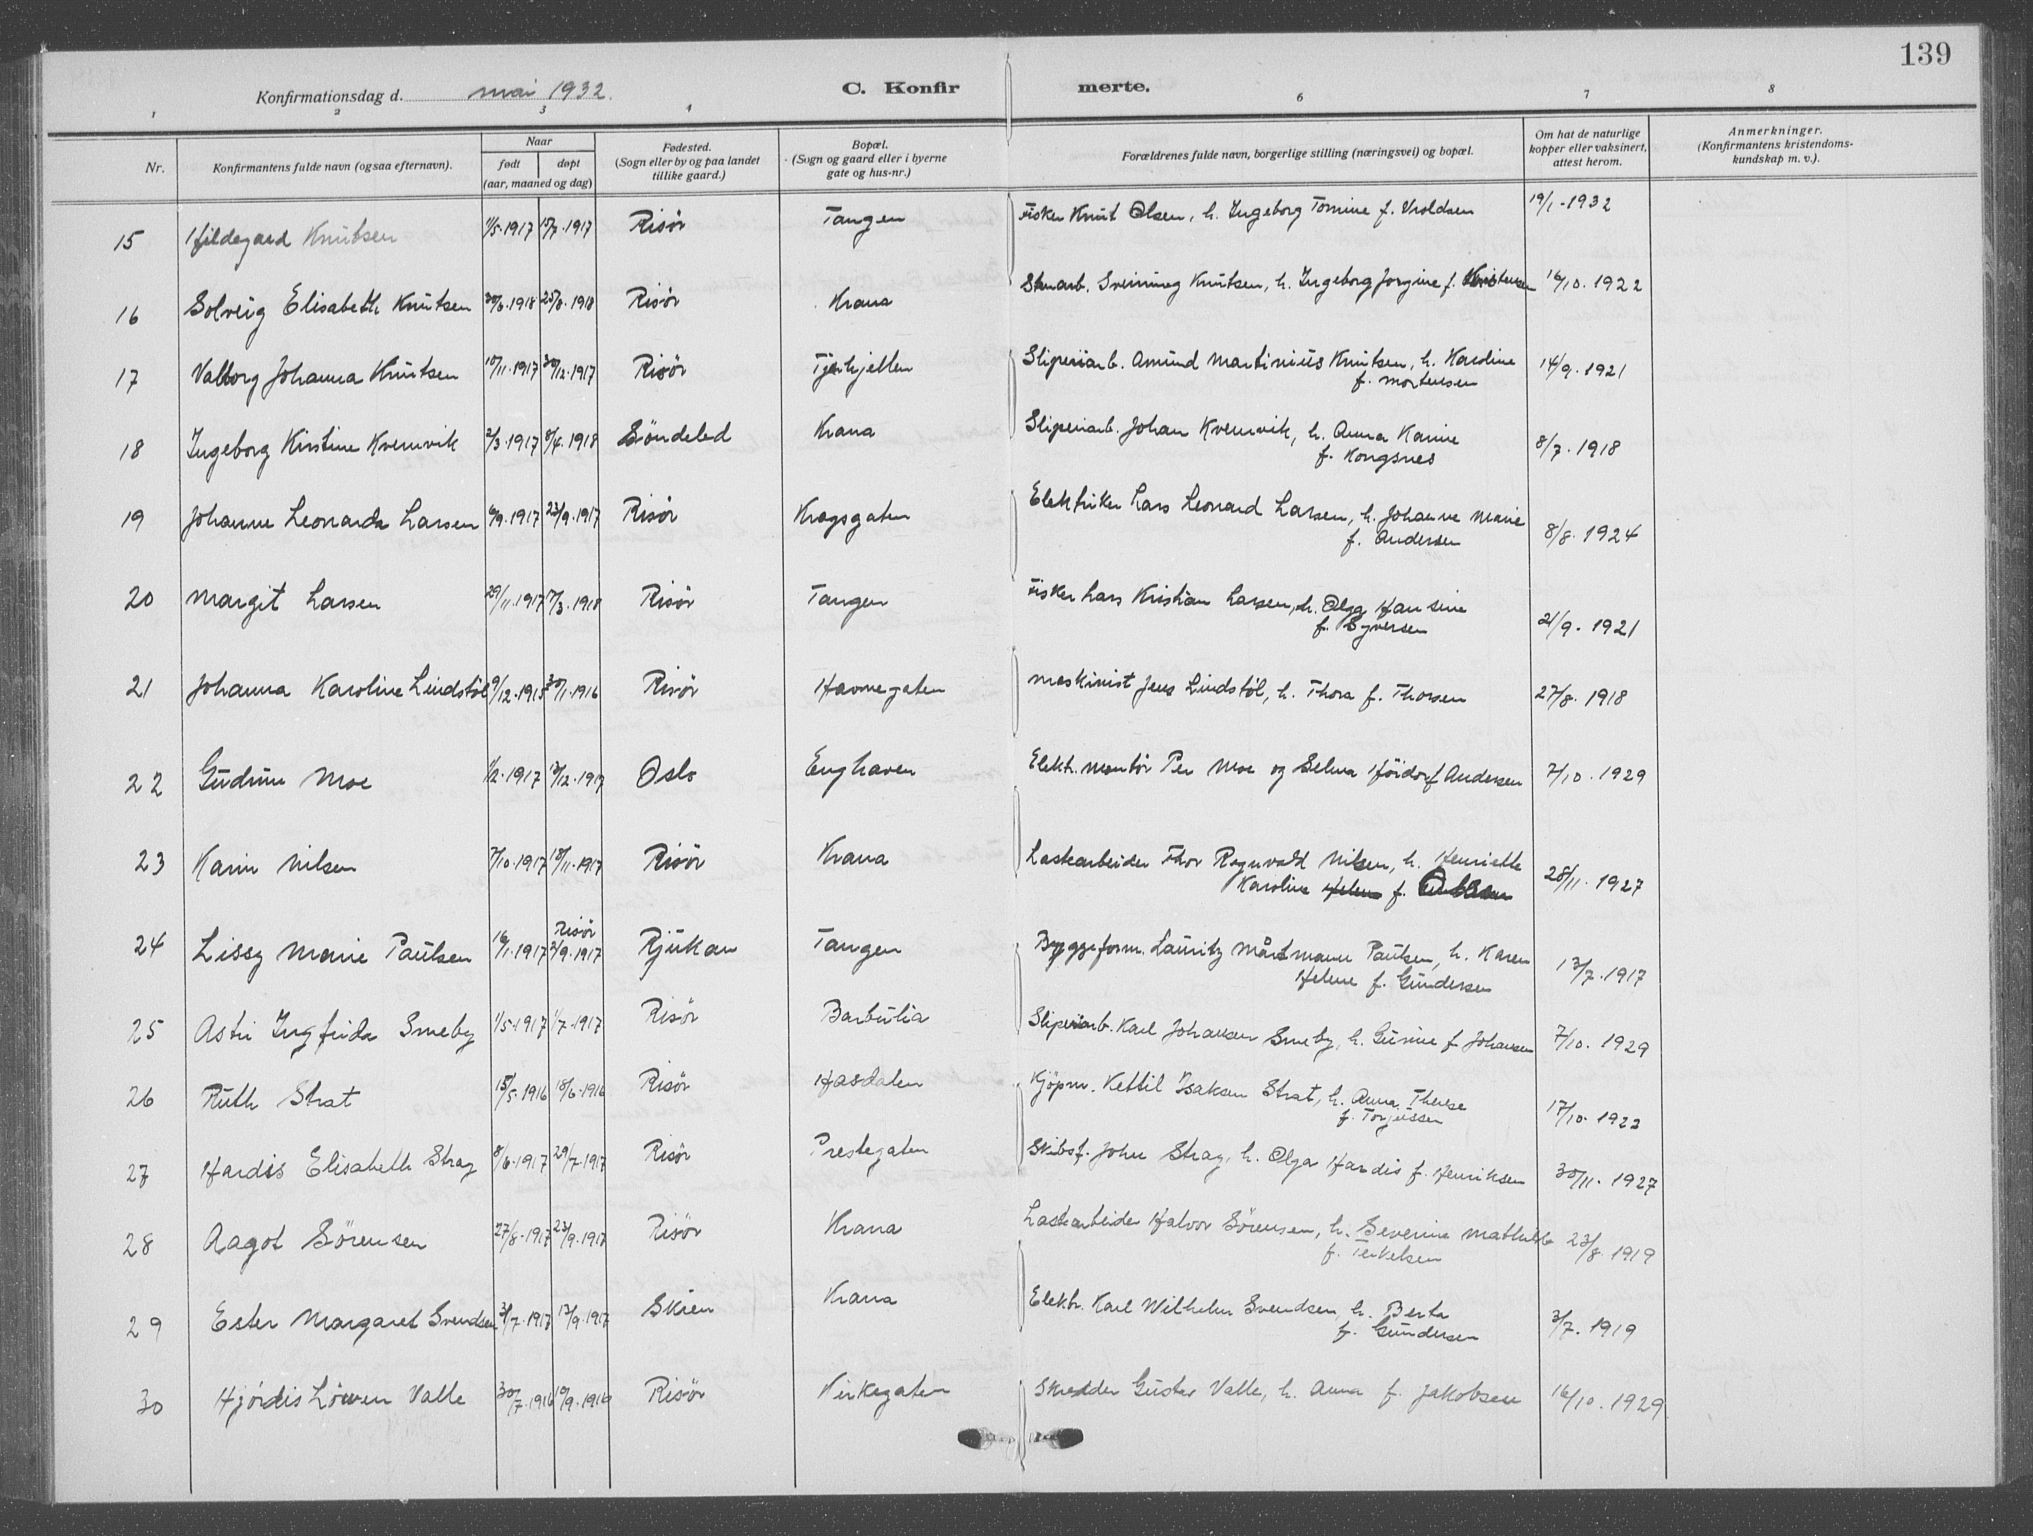 139
Konfirmationsdag d. mai 1932.
C. Konfirmerte.
1 2 3 4 6 7 8
Nr.
Konfirmantens fulde navn (ogsaa efternavn).
Naar
født
døpt
(aar, maaned og dag)
Fødested.
(Sogn eller by og paa landet
tillike gaard.)
Bopæl.
(Sogn og gaard eller i byerne
gate og hus-nr.)
Forældrenes fulde navn, borgerlige stilling (næringsvei) og bopæl.
Om hat de naturlige
kopper eller vaksinert,
attest herom.
Anmerkninger.
(Konfirmantens kristendoms-
kundskap m. v.).
15 Hildegard Knutsen 1/5.1917 15/7.1917 Risör Tangen Fisker Knut Olsen, h. Ingeborg Tomine f. Vroldsen 19/1-1932
16 Solveig Elisabeth Knutsen 30/6.1918 25/8.1918 Risör Krana Svinning Knutsen, h. Ingeborg Jorgine f. Kristensen 16/10.1922
17 Valborg Johanna Knutsen 10/11.1917 30/12.1917 Risör Tjenhjellen Sliperiarb. Amund Martinius Knutsen, h. Karoline
f. Mortensen 14/9.1921
18 Ingeborg Kirstine Kvernvik 2/3.1917 8/4.1918 Söndeled Krana Sliperiarb. Johan Kvernvik, h. Anna Karine
f. Kongsnes 8/7.1918
19 Johanne Leonarda Larsen 6/9.1917 23/9.1917 Risör Kragsgaten Elektriker Lars Leonard Larsen, h. Johanne Marie
f. Andersen 8/8.1924
20 Margit Larsen 29/11.1917 17/3.1918 Risör Tangen Fisker Lars Kristian Larsen, h. Olga Hansine
f. Syversen 21/9.1921
21 Johanna Karoline Lindstöl 9/12.1915 30/1.1916 Risör Havnegaten Maskinist Jens Lindstöl, h. Thora f. Thorsen 27/8.1918
22 Gudrun Moe 1/2.1917 13/12.1917 Oslo Enghaven Elekt. montör Per Moe og Selma Höidorf Andersen 7/10.1929
23 Karin Nilsen 7/10.1917 18/11.1917 Risör Krana Lastearbeider Thor Ragnvald Nilsen, h. Henriette
Karoline f. 28/11.1927
24 Lissy Marie Paulsen 16/1.1917 Risör 2/9.1917 Rjukan Tangen Byggeform. Lauritz Mårtmann Paulsen, h. Karen
Helene f. Gundersen 13/7.1917
25 Astri Ingfrida Smeby 1/5.1917 1/7.1917 Risör Barbulia Sliperiarb. Karl Johansen Smeby, h. Gunine f. Johansen 7/10.1929
26 Ruth Strat 15/5.1916 18/6.1916 Risör Hasdalen Kjöpm. Kettil Isaksen Strat, h. Anna Therese
f. Torjussen 17/10.1922
27 Hardis Elisabeth Stray 8/6.1917 29/7.1917 Risör Prestegaten Skibsf. John Stray, h. Olga Hardis f. Henriksen 30/11.1927
28 Aagot Sörensen 27/8.1917 23/9.1917 Risör Krana Lastearbeider Halvor Sörensen, h. Severine Mathilde
f. Terkelsen 23/8.1919
29 Ester Margaret Svendsen 31/7.1917 17/9.1917 Skien Krana Elektr. Karl Wilhelm Svendsen, h. Berta
f. Gundersen 3/7.1919
30 Hjördis Löwen Valle 30/7.1916 10/9.1916 Risör Kirkegaten Skredder Gustav Valle, h. Anna f. Jakobsen 16/10.1929